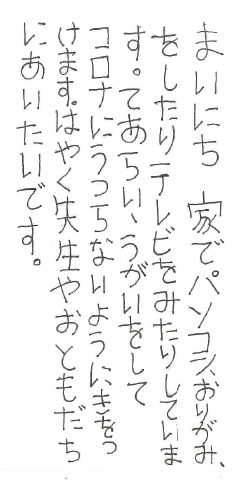 まいにち 家でパソコン、おりがみ、
をしたりテレビをみたりしていま
す。てあらい、うがいをして
コロナにうつらないようにきをつ
けます。はやく先生やおともだち
にあいたいです。